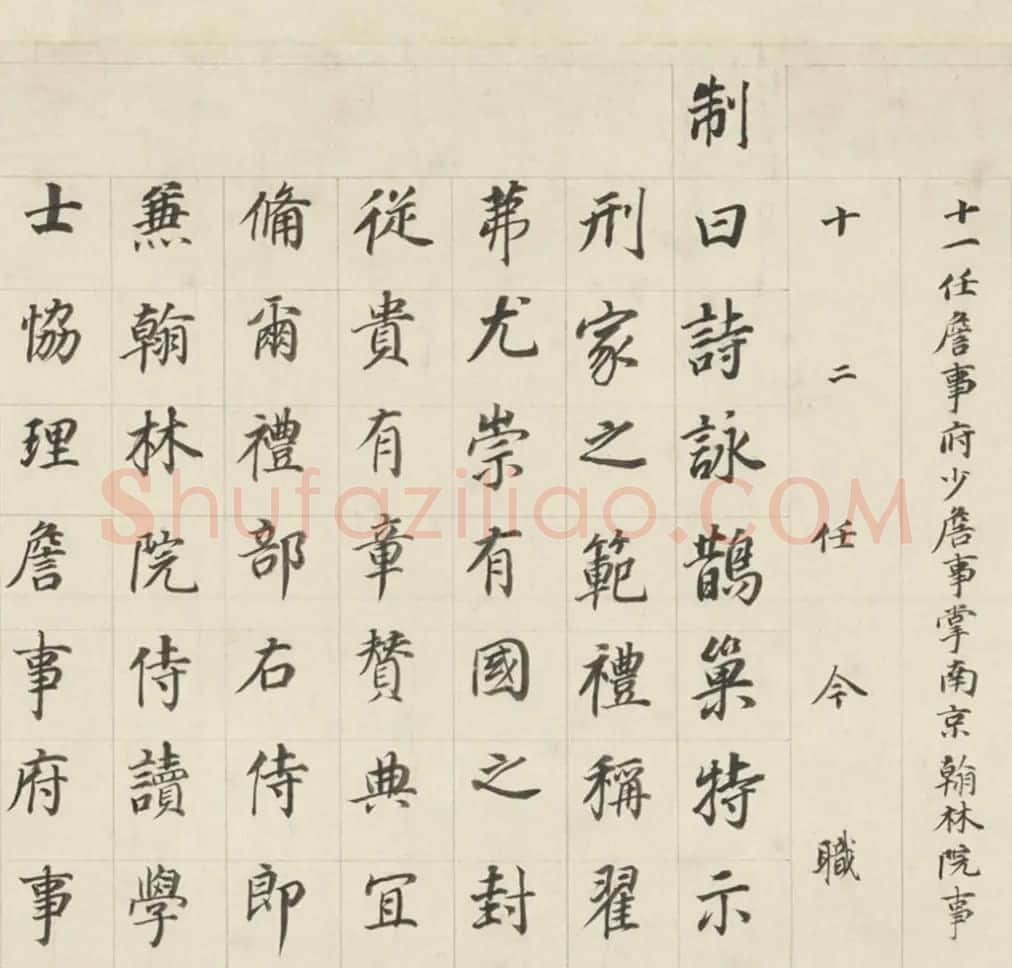 十一任詹事府少詹事掌南京翰林院事
十二任今職
制曰詩詠鵲巢特示
刑家之範禮稱翟
茀尤崇有國之封
從貴有章賛典宜
俻爾禮部右侍郎
兼翰林院侍讀學
士協理詹事府事
Shufaziliao.COM